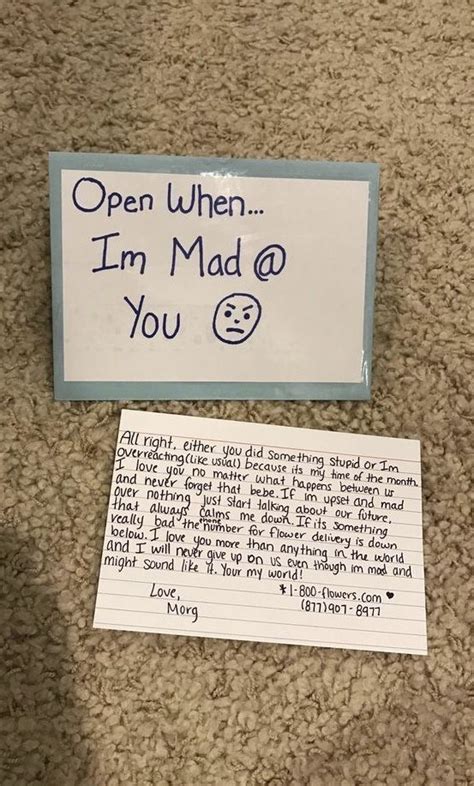 Open When...
Im Mad @
You
All right, either you did something stupid or Im
overreacting (like usual) because its my time of the month.
I love you no matter what happens between us
and never forget that bebe. If im upset and mad
over nothing just start talking about our future,
that always calms me down. If its something
really bad the phone number for flower delivery is down
below. I love you more than anything in the world
and I will never give up on us even though im mad and
might sound like it. Your my world!
Love,
Morg
*1-800-flowers.com ♥
(877)907-8977